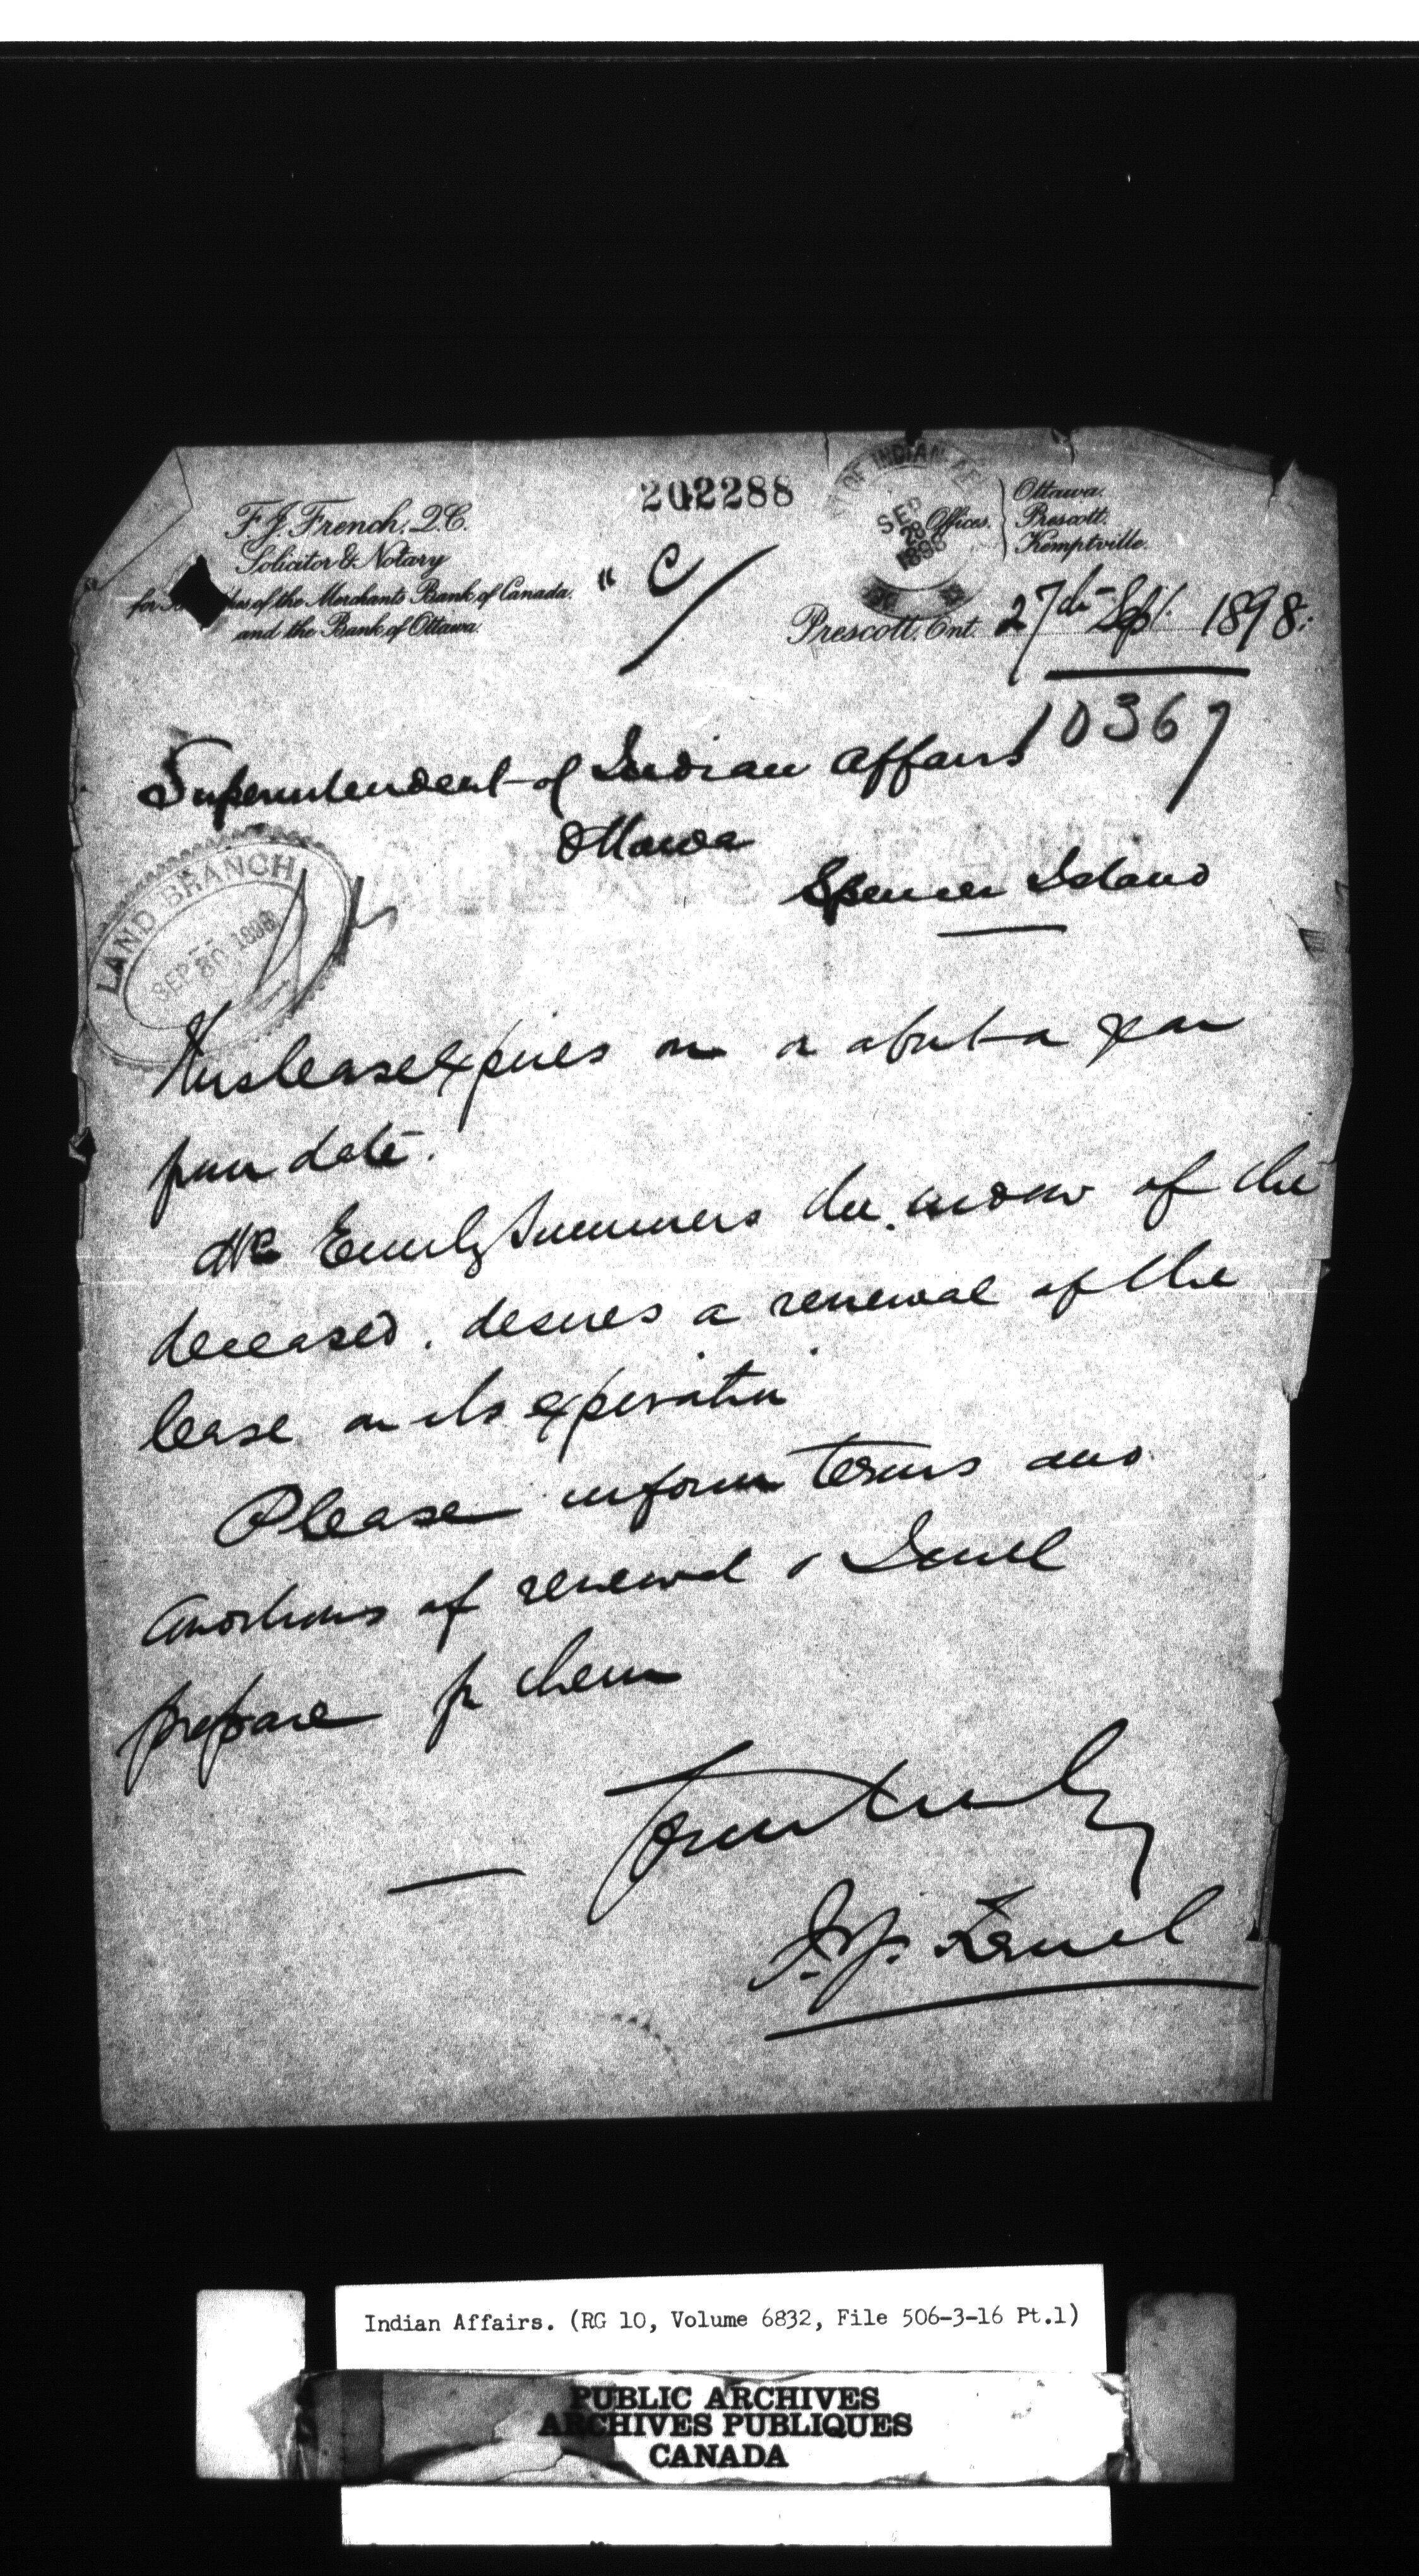 202288
F. J. French, Q.C.
Solicitor & Notary
of the Merchants Bank of Canada.
and the Bank of Ottawa.
" C/
OF INDIAN
SEP
28
1898
Offices.
Ottawa.
Prescott.
Kemptville.
Prescott, Ont. 27th Sept. 1898.
10367
Superintendent of Indian Affairs
Ottawa
Spencer Island
LAND BRANCH
SEP 30 1898
This lease expires on or about a year
from date.
Emily Summers the widow of the
deceased, desires a renewal of the
lease on its expiration
Please inform terms and
conditions of renewal &
prepare for them
Yours truly
F. J. French
Indian Affairs. (RG 10, Volume 6832, File 506-3-16 Pt.1)
PUBLIC ARCHIVES
ARCHIVES PUBLIQUES
CANADA